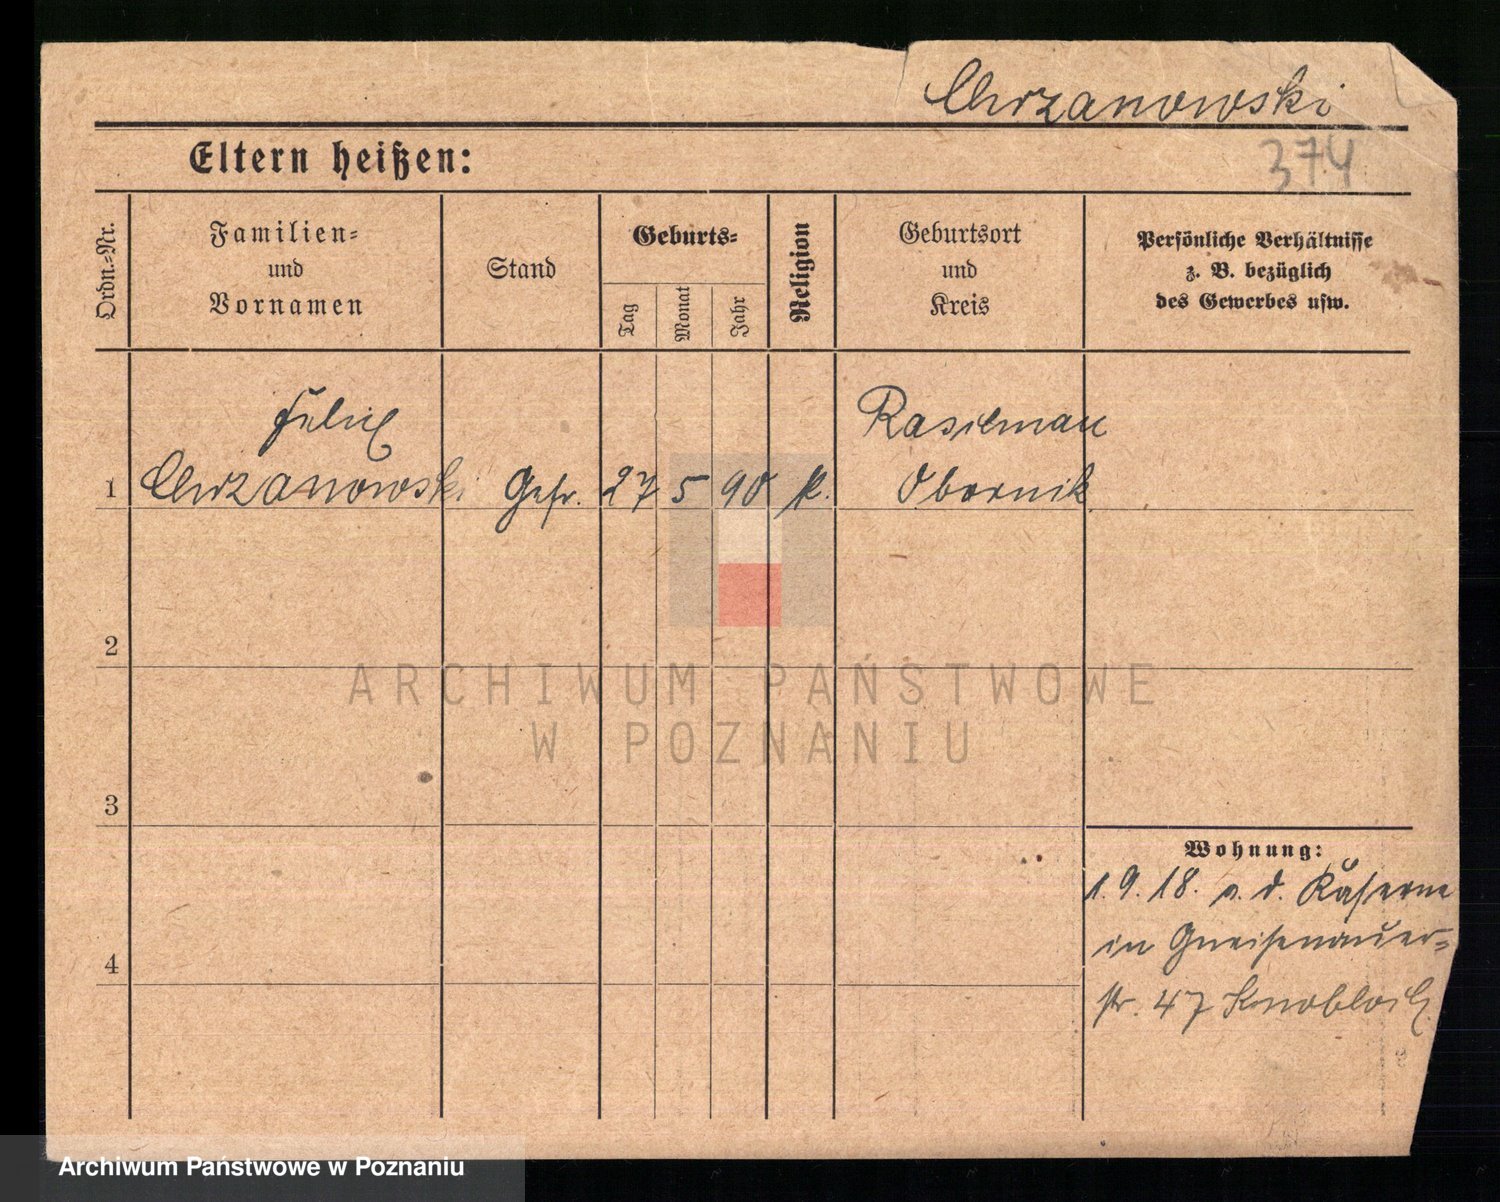 Chrzanowski
Eltern heißen:
374
Ordn.-Nr.
Familien-
und
Vornamen
Stand
Geburts-
Tag
Monat
Jahr
Religion
Geburtsort
und
Kreis
Persönliche Verhältnisse
z. B. bezüglich
des Gewerbes usw.
Felix
Rasilman
1 Chrzanowski Gefr. 27 5 90 k. Obornik
2
ARCHIWUM PAŃSTWOWE
W POZNANIU
3
Wohnung:
1. 9. 18. v. d. Kaserne
in Gneisenauer-
4
str. 47 Knobloch
Archiwum Państwowe w Poznaniu